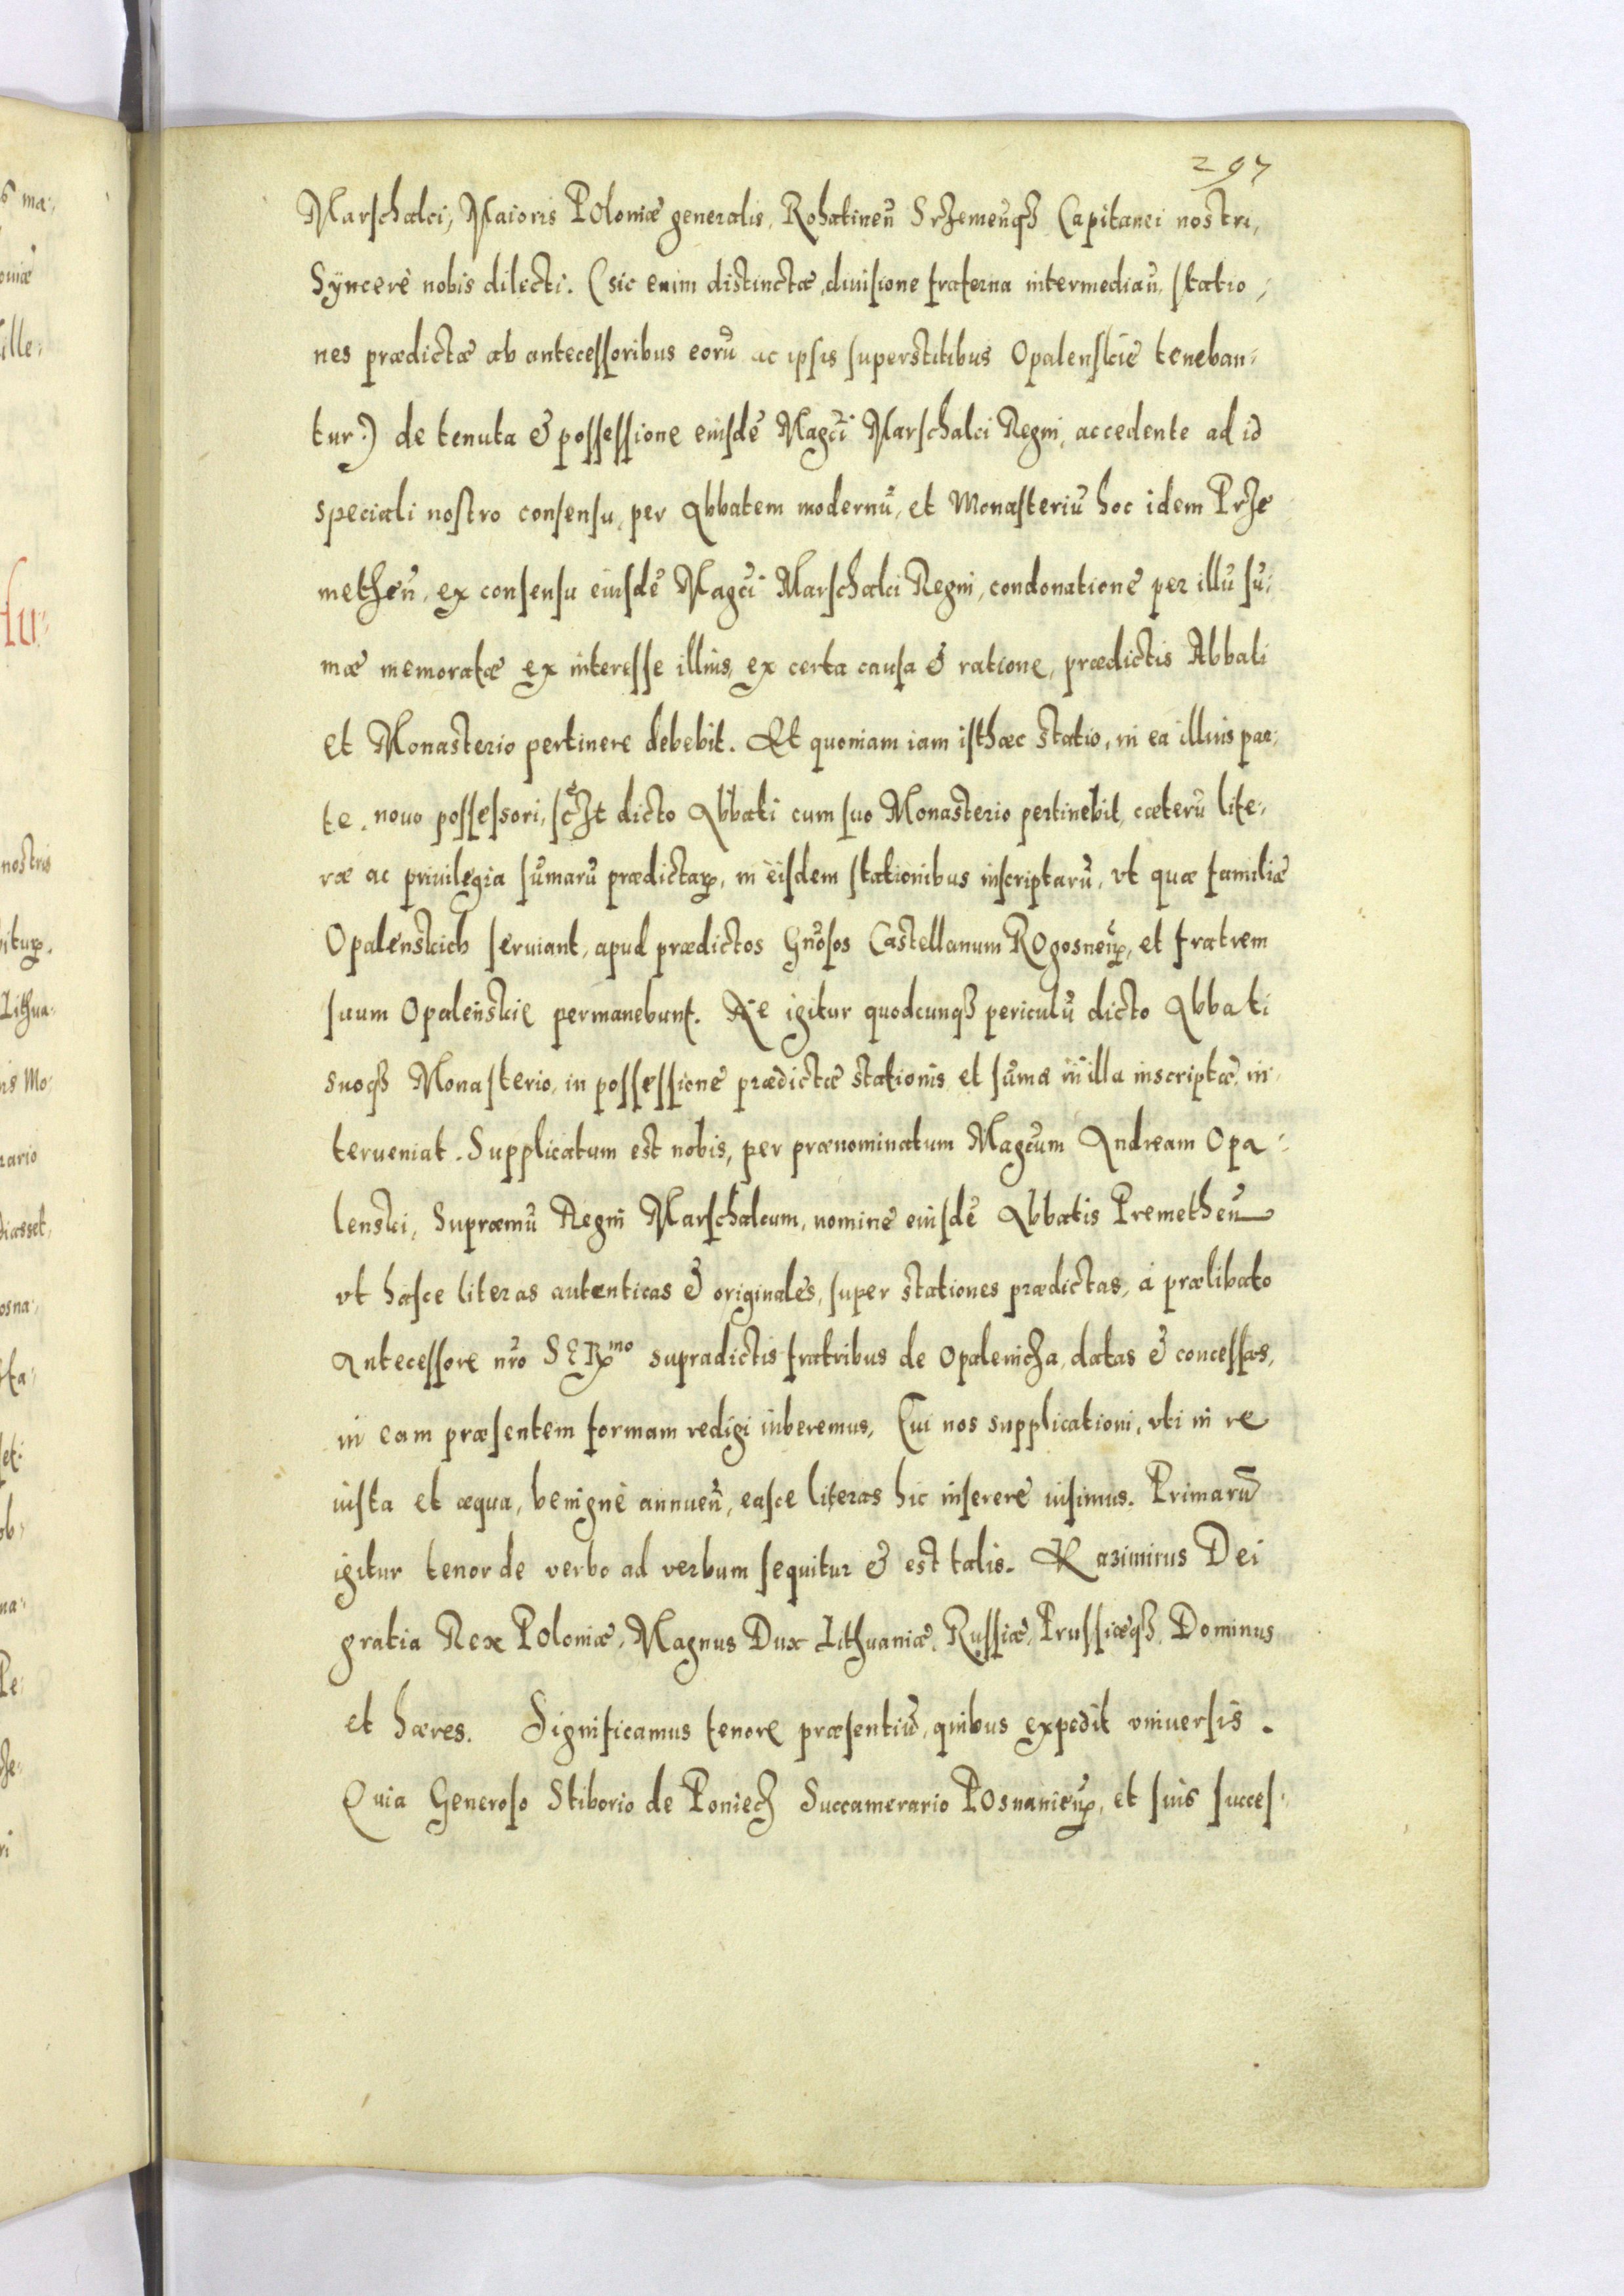 297
Marschalci, Maioris Poloniæ generalis, Rohatineñ Srzemeñqȝ Capitanei nostri,
Sÿncerè nobis dilecti. (sic enim distinctæ, diuisione fraterna intermediañ, statio,
nes prædictæ ab antecessoribus eorũ ac ipsis superstitibus Opalenskie teneban,
tur:) de tenuta & possessione eiusdẽ Magc̃i Marschalci Regni, accedente ad id
speciali nostro consensu, per Abbatem modernũ, et Monasteriũ hoc idem Prze
metheñ, ex consensu eiusdẽ Magc̃i Marschalci Regni, condonationẽ per illũ sũ,
mæ memoratæ ex interesse illius, ex certa causa & ratione, prædictis Abbati
et Monasterio pertinere debebit. Et quoniam iam isthæc statio, in ea illius par,
te, nouo possessori, sc̃zt dicto Abbati cum suo Monasterio pertinebit, cæterũ lite,
ræ ac priuilegia sũmarũ prædictaꝝ, in eisdem stationibus inscriptarũ, vt quæ familiæ
Opalenskich seruiant, apud prædictos Gñosos Castellanum Rogosneñ, et fratrem
suum Opalenskie permanebunt. Ne igitur quodcunqȝ periculũ dicto Abbati
suoqȝ Monasterio, in possessionẽ prædictæ stationis, et sũmæ in illa inscriptæ, in,
terueniat. Supplicatum est nobis, per prænominatum Magc̃um Andream Opa,
lenski, Supræmũ Regni Marschalcum, nominẽ eiusdẽ Abbatis Premetheñ
vt hasce literas autenticas & originales, super stationes prædictas, à prælibato
Antecessore nr̃o SERmo supradictis fratribus de Opalenicza, datas & concessas,
in eam præsentem formam redigi iuberemus. Cui nos supplicationi, vti in re
iusta et æqua, benignè annueñ, easce literas hic inserere iussimus. Primarũ
igitur tenor de verbo ad verbum sequitur & est talis. Kazimirus Dei
gratia Rex Poloniæ, Magnus Dux Lithuaniæ, Russiæ, Prussiæqȝ, Dominus
et hæres. Significamus tenore præsentiũ, quibus expedit vniuersis.
Quia Generoso Stiborio de Poniecz Succamerario Posnanieñ, et suis succes,